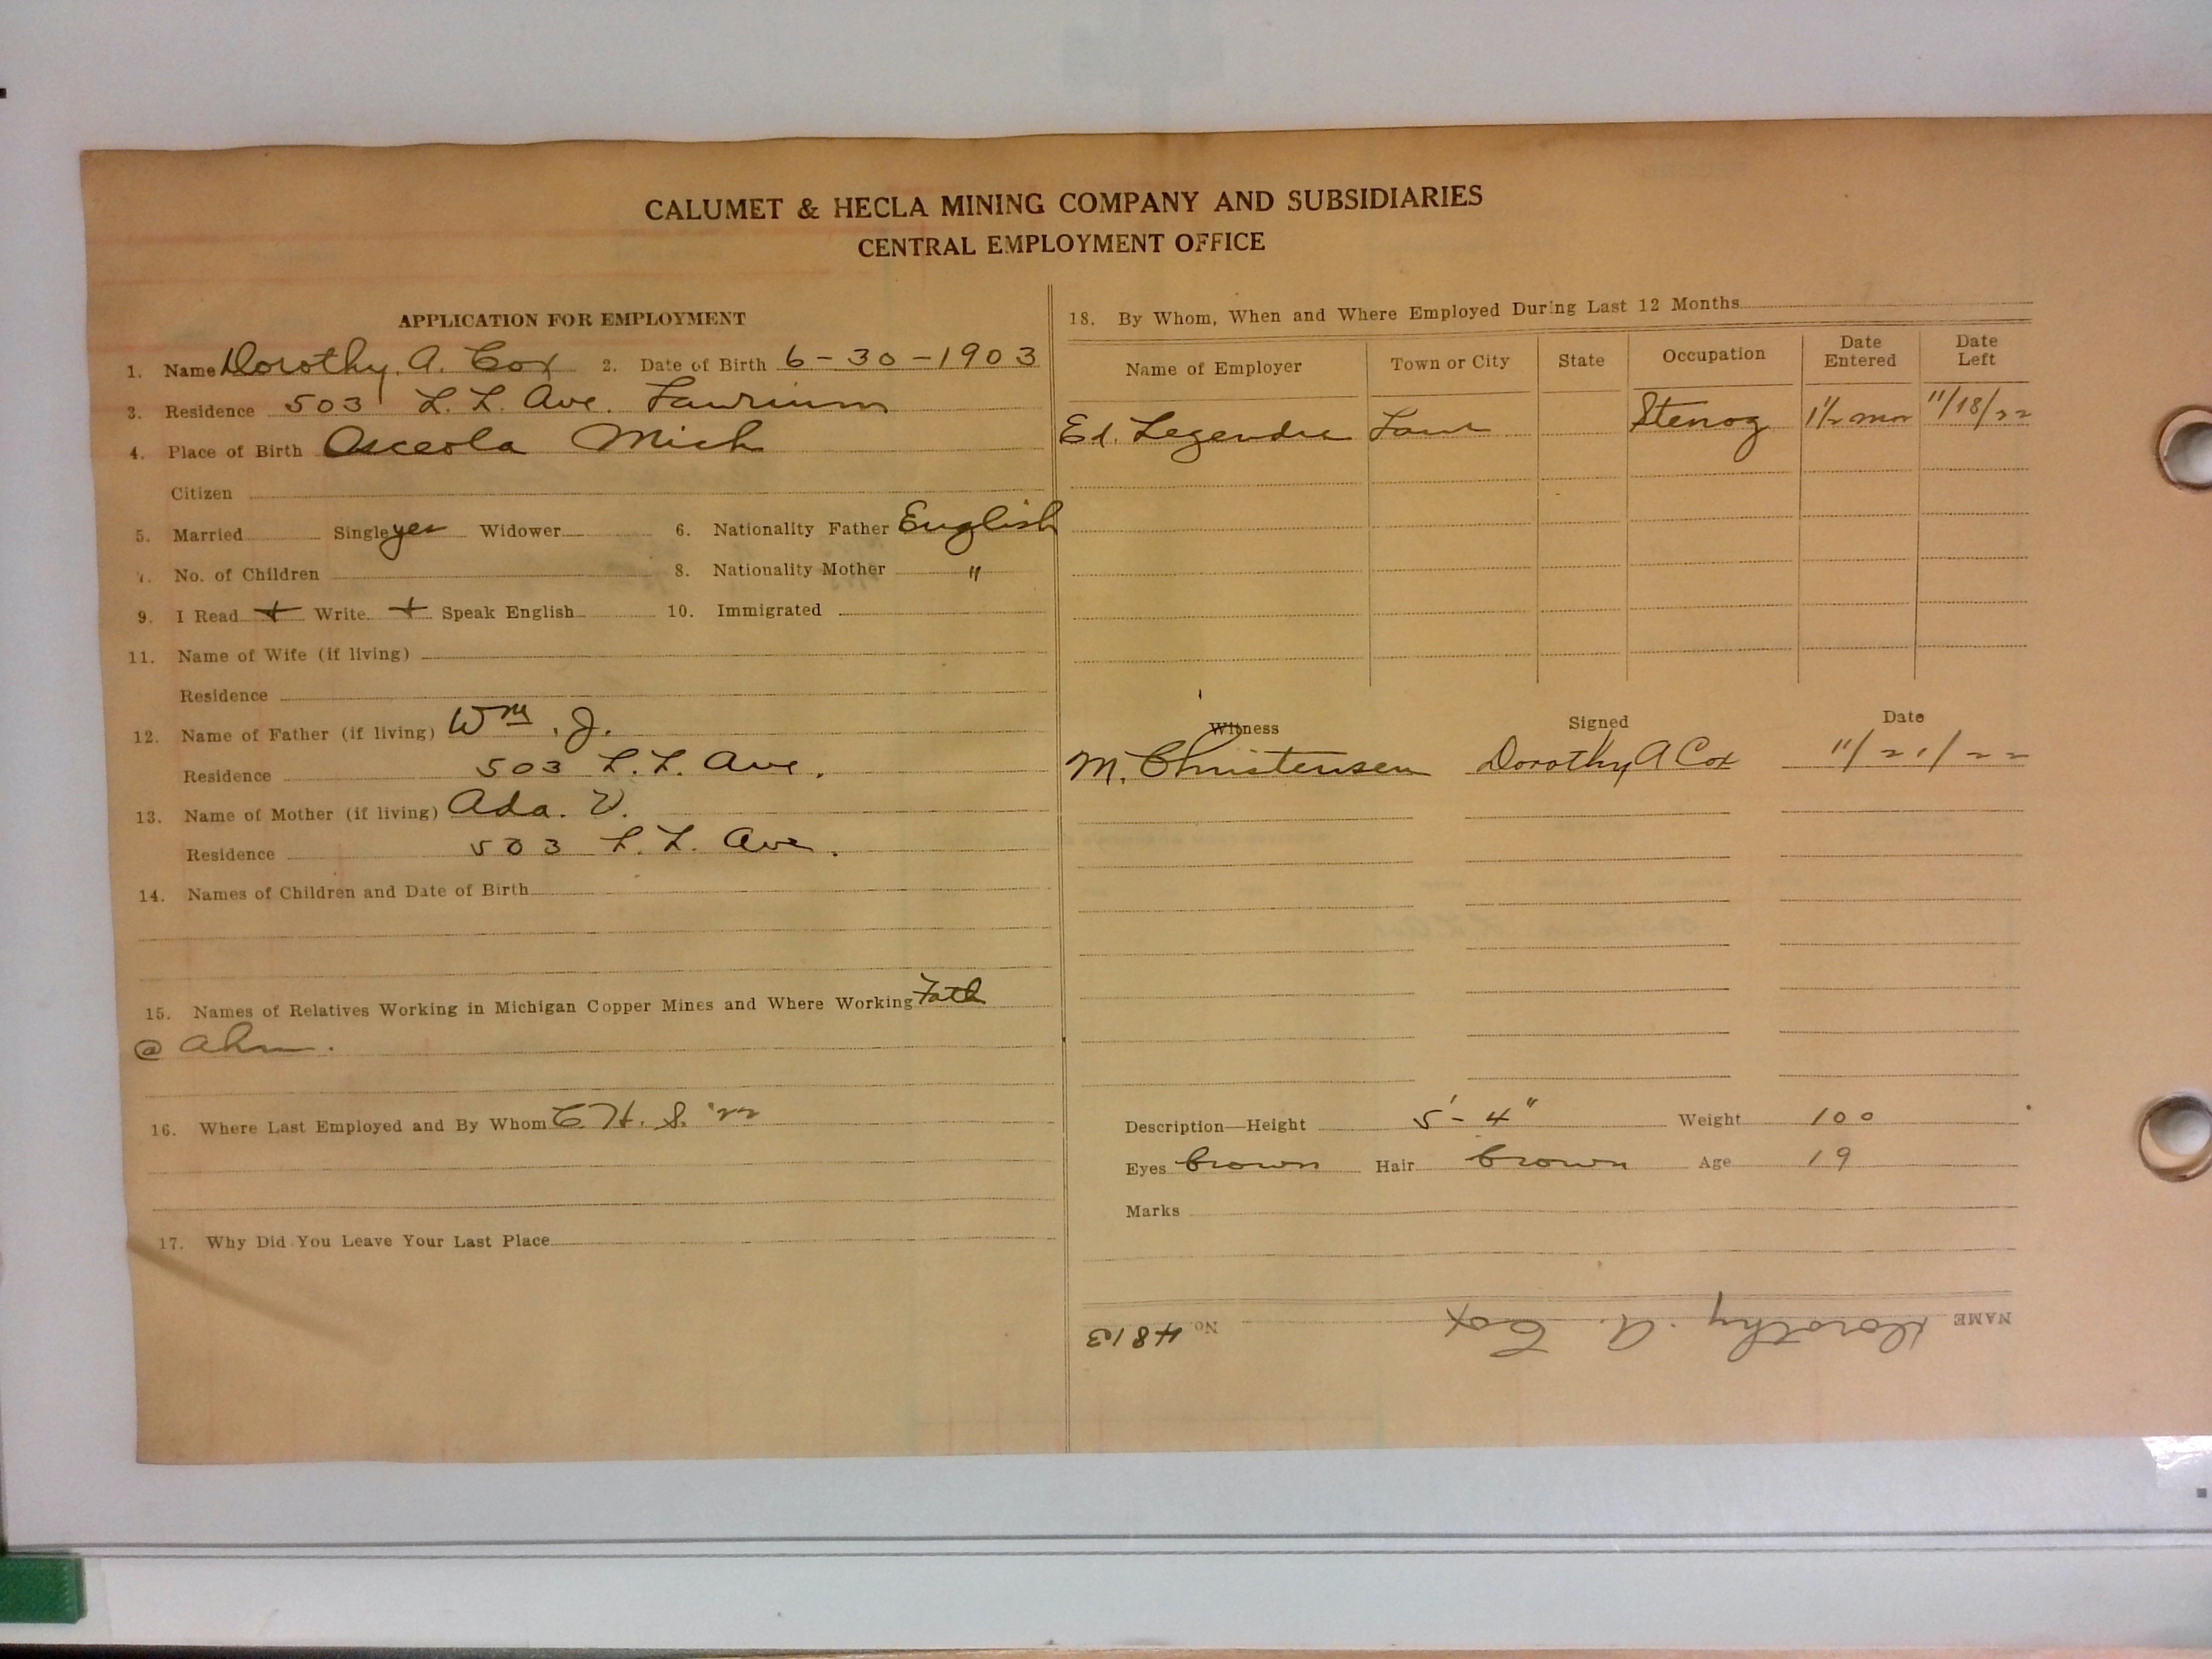 CALUMET & HECLA MINING COMPANY AND SUBSIDIARIES
CENTRAL EMPLOYMENT OFFICE
APPLICATION FOR EMPLOYMENT
1. Name Dorothy. A. Cox 2. Date of Birth 6-30-1903
3. Residence 503 L. L. Ave. Laurium
4. Place of Birth Osceola Mich
Citizen
5. Married Single yes Widower 6. Nationality Father English
7. No. of Children 8. Nationality Mother "
9. I Read + Write + Speak English 10. Immigrated
11. Name of Wife (if living)
Residence
12. Name of Father (if living) Wm. J.
Residence 503 L. L. Ave.
13. Name of Mother (if living) Ada. V.
Residence 503 L. L. Ave.
14. Names of Children and Date of Birth
15. Names of Relatives Working in Michigan Copper Mines and Where Working Fath
@ Ahm.
16. Where Last Employed and By Whom C. H. S. '22
17. Why Did You Leave Your Last Place
18. By Whom, When and Where Employed During Last 12 Months
Name of Employer Town or City State Occupation Date Entered Date Left
Ed. Legendre Laur Stenog 1 1/2 mos 11/18/22
Witness Signed Date
M. Christensen Dorothy A Cox 11/21/22
Description—Height 5'-4" Weight 100
Eyes brown Hair brown Age 19
Marks
NAME Dorothy. A. Cox No 4813